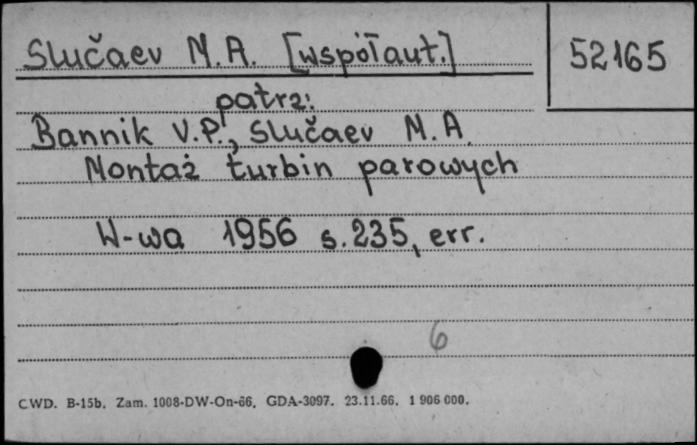 Slučaev M.A. [współaut.]
52165
patrz:
Bannik V.P., Slučaev M.A.
Montaż turbin parowych
W-wa 1956 s.235, err.
6
CWD. B-15b. Zam. 1008-DW-On-66. GDA-3097. 23.11.66. 1 906 000.